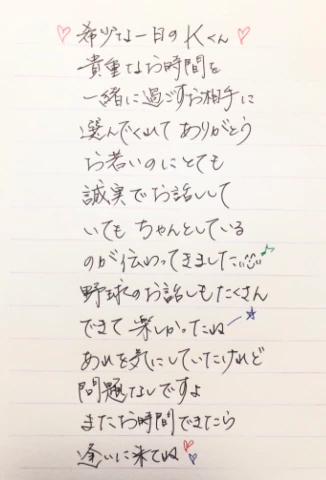 ♡希少な一日のKくん♡
貴重なお時間を
一緒に過ごすお相手に
選んでくれてありがとう
お若いのにとても
誠実でお話しして
いてもちゃんとしている
のが伝わってきました
野球のお話しもたくさん
できて楽しかったね☆
あれを気にしていたけれど
問題なしですよ
またお時間できたら
逢いに来てね♡♡